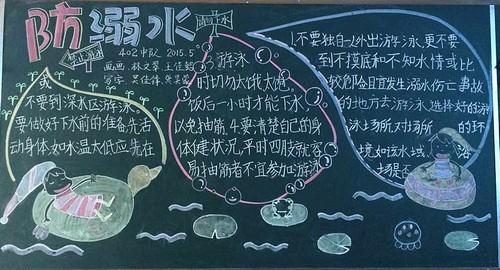 防溺水
402中队 2015.5
禁止游泳
1.不要独自一人外出游泳,更不要
到不摸底和不知水情或比
较
且宜发生溺水伤亡事故
的地方去游泳。选择好的游
泳场所,对场所的环
境,如该水域
浴
2.游泳
时切勿太饿、太饱。
饭后一小时才能下水,
以免抽筋。4.要清楚自己的身
体健康状况,平时四肢就容
易抽筋者不宜参加游泳
或
不要到深水区游泳。
要做好下水前的准备,先活
动身体,如水温太低应先在